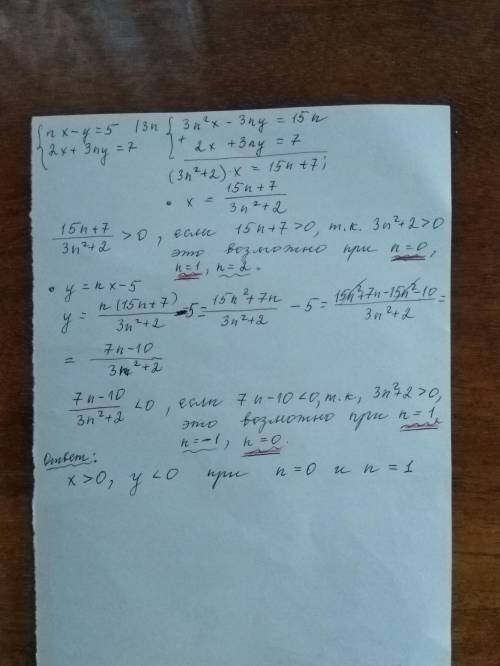 { nx-y=5 |3n { 3n²x - 3ny = 15n
2x+3ny=7 + 2x +3ny = 7
(3n²+2)·x = 15n+7;
• x = (15n+7)/(3n²+2)
(15n+7)/(3n²+2) > 0, если 15n+7>0, т.к. 3n²+2>0
это возможно при n=0,
n=1, n=2.
• y = nx-5
y = n(15n+7)/(3n²+2) - 5 = (15n²+7n)/(3n²+2) - 5 = (15n²+7n-15n²-10)/(3n²+2) =
= (7n-10)/(3n²+2)
(7n-10)/(3n²+2) < 0, если 7n-10<0, т.к. 3n²+2>0,
это возможно при n=1
n=-1, n=0.
Ответ:
x>0, y<0 при n=0 и n=1